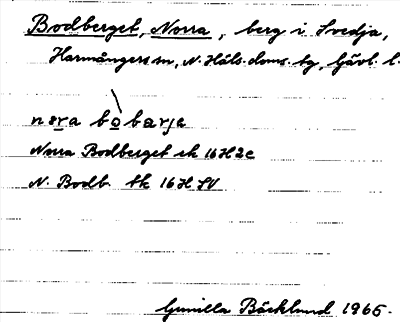 Bodberget, Norra, berg i Svedja,
Harmångers sn, N. Häls. doms. tg, Gävl. l.
nɷra bobarja
Norra Bodberget ek 16H2c
N. Bodb. tk 16H SV
Gunilla Bäcklund 1965.